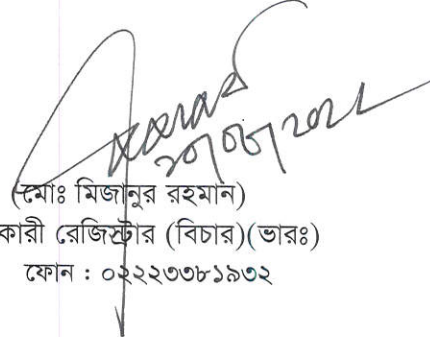 (মোঃ মিজানুর রহমান)
কারী রেজিস্ট্রার (বিচার)(ভারঃ)
ফোন : ০২২২৩৩৮১৯৩২